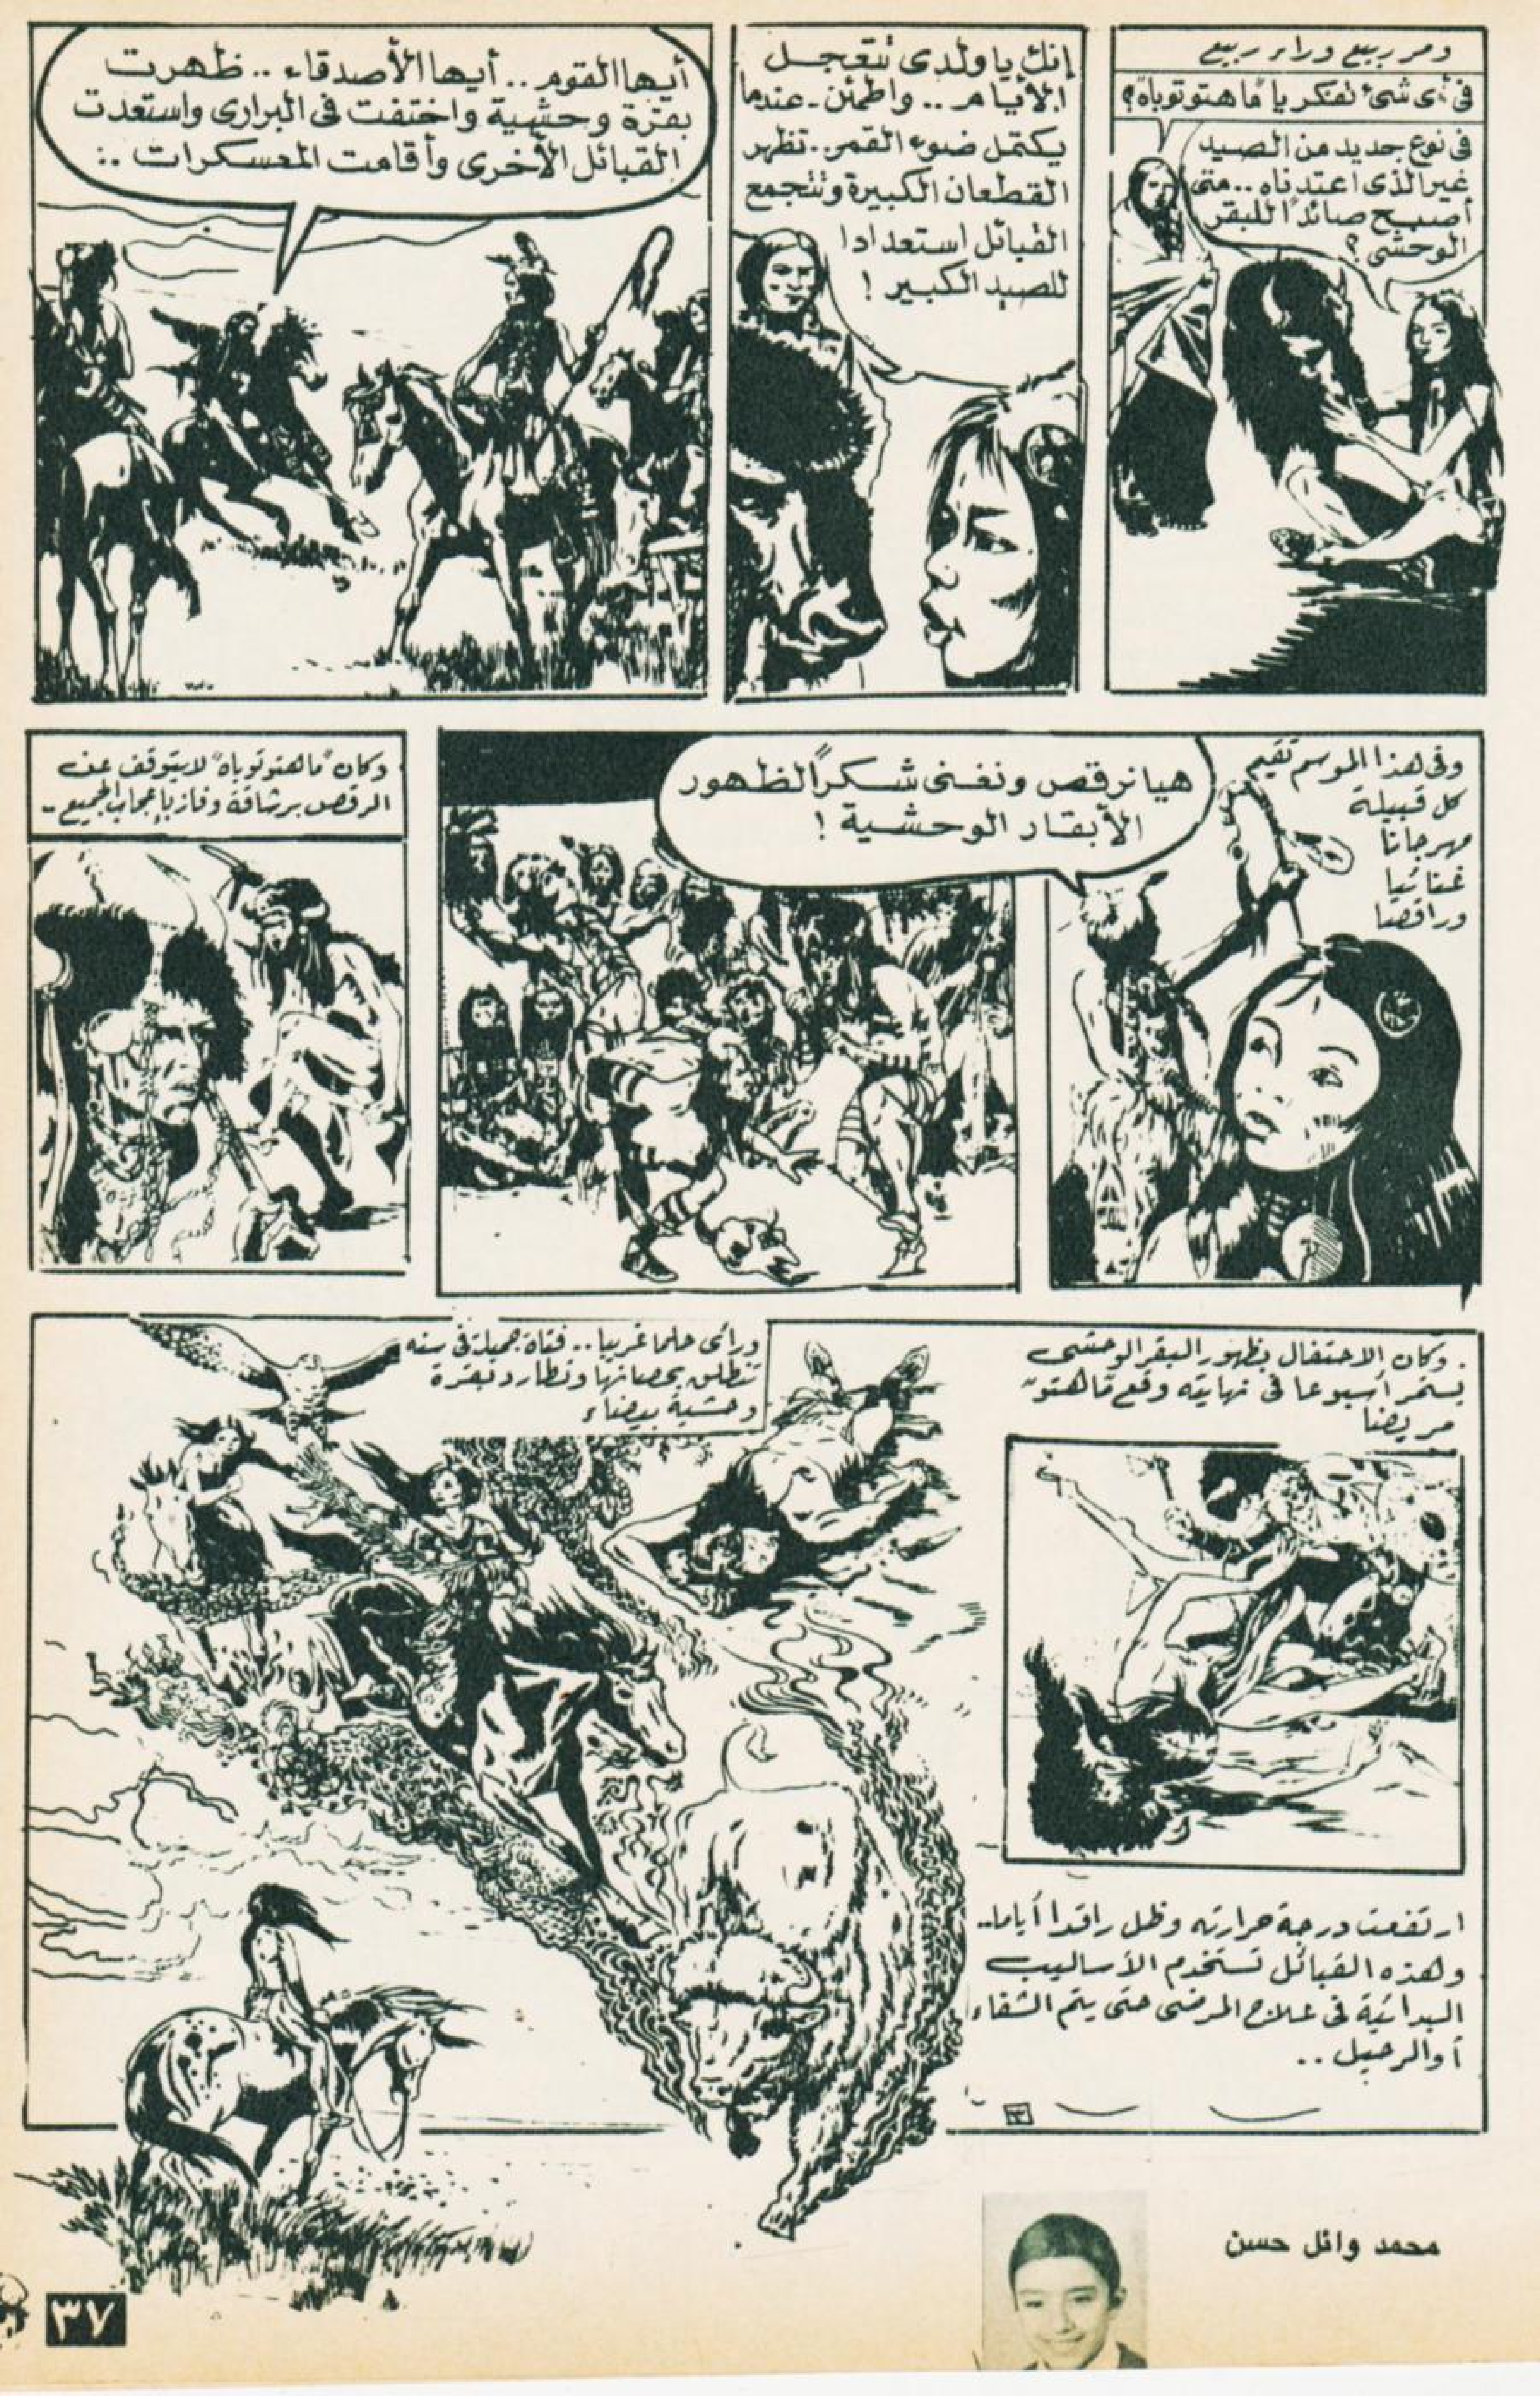 ومر ربيع وراء ربيع
فى أى شئ تفكر يا "ماهتوتوباه"؟
فى نوع جديد من الصيد
غير الذى اعتدناه .. متى
أصبح صائدًا للبقر
الوحشى؟
إنك يا ولدى تتعجل
الأيام .. واطمئن - عندما
يكتمل ضوء القمر .. تظهر
القطعان الكبيرة وتتجمع
القبائل استعدادا
للصيد الكبير !
أيها القوم .. أيها الأصدقاء .. ظهرت
بقرة وحشية واختفت فى البرارى واستعدت
القبائل الأخرى وأقامت المعسكرات ..
وفى هذا الموسم تقيم
كل قبيلة
مهرجانا
غنائيا
وراقصا
هيا نرقص ونغنى شكرًا لظهور
الأبقار الوحشية !
وكان "ماهتوتوباه" لا يتوقف عن
الرقص برشاقة وفاز بإعجاب الجميع -
. وكان الاحتفال بظهور البقر الوحشى
يستمر أسبوعا فى نهايته وقع "ماهتو"
مريضا
ارتفعت درجة حرارته وظل راقدا أياما..
وهذه القبائل تستخدم الأساليب
البدائية فى علاج المرضى حتى يتم الشفاء
أو الرحيل ..
ورأى حلما غريبا .. فتاة جميلة فى سنه
تنطلق بحصانها وتطارد بقرة
وحشية بيضاء
محمد وائل حسن
٣٧